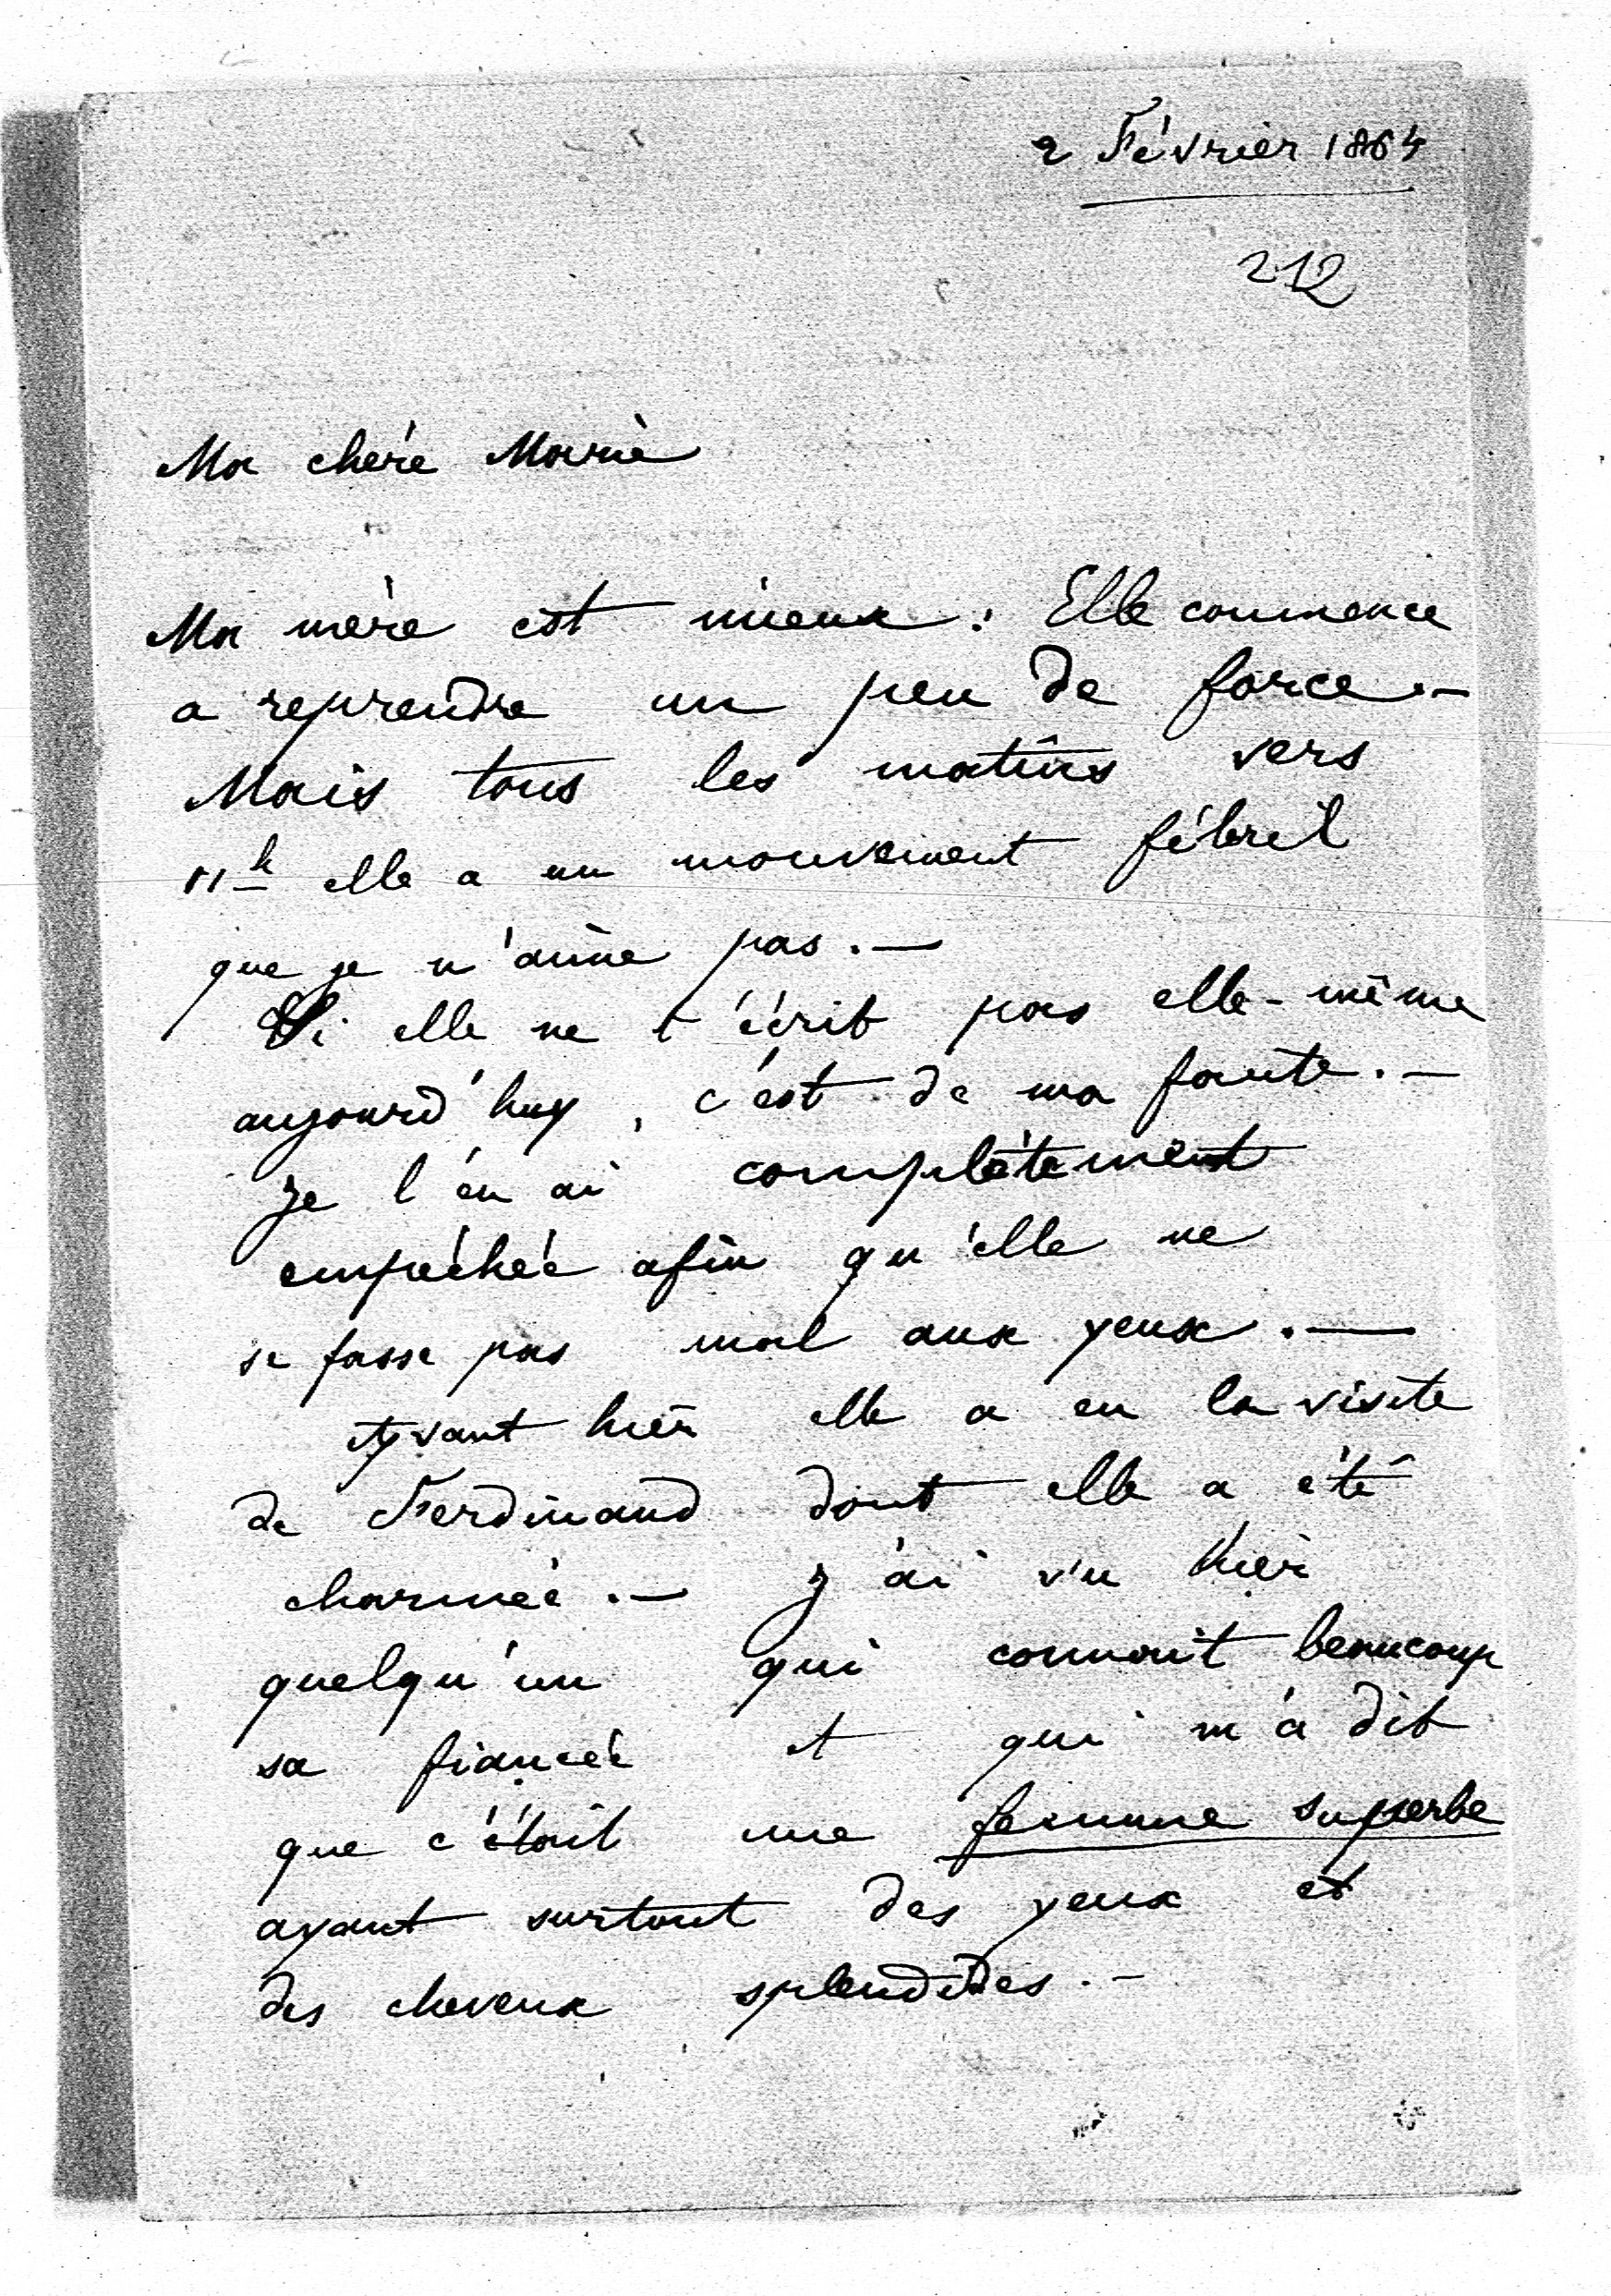 2 Février 1864
212
Ma chère Marie
Ma mère est mieux. Elle commence
a reprendre un peu de force.—
Mais tous les matins vers
11h elle a un mouvement fébril
que je n'aime pas.—
Si elle ne t'écrit pas elle-même
aujourd'huy, c'est de ma faute.—
Je l'en ai complètement
empéchée afin qu'elle ne
se fasse pas mal aux yeux.—
Avant hier elle a eu la visite
de Ferdinand dont elle a été
charmée.— J'ai vu hier
quelqu'un qui connait beaucoup
sa fiancée et qui m'a dit
que c'était une femme superbe
ayant surtout des yeux et
des cheveux splendides.—